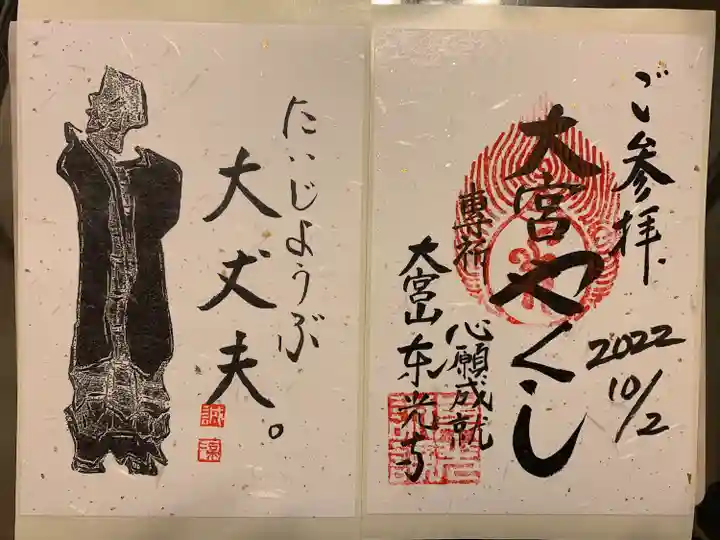 ご参拝
2022
10/2
大宮やくし
専祈
心願成就
大宮山东光寺
だいじょうぶ
大丈夫。
誠